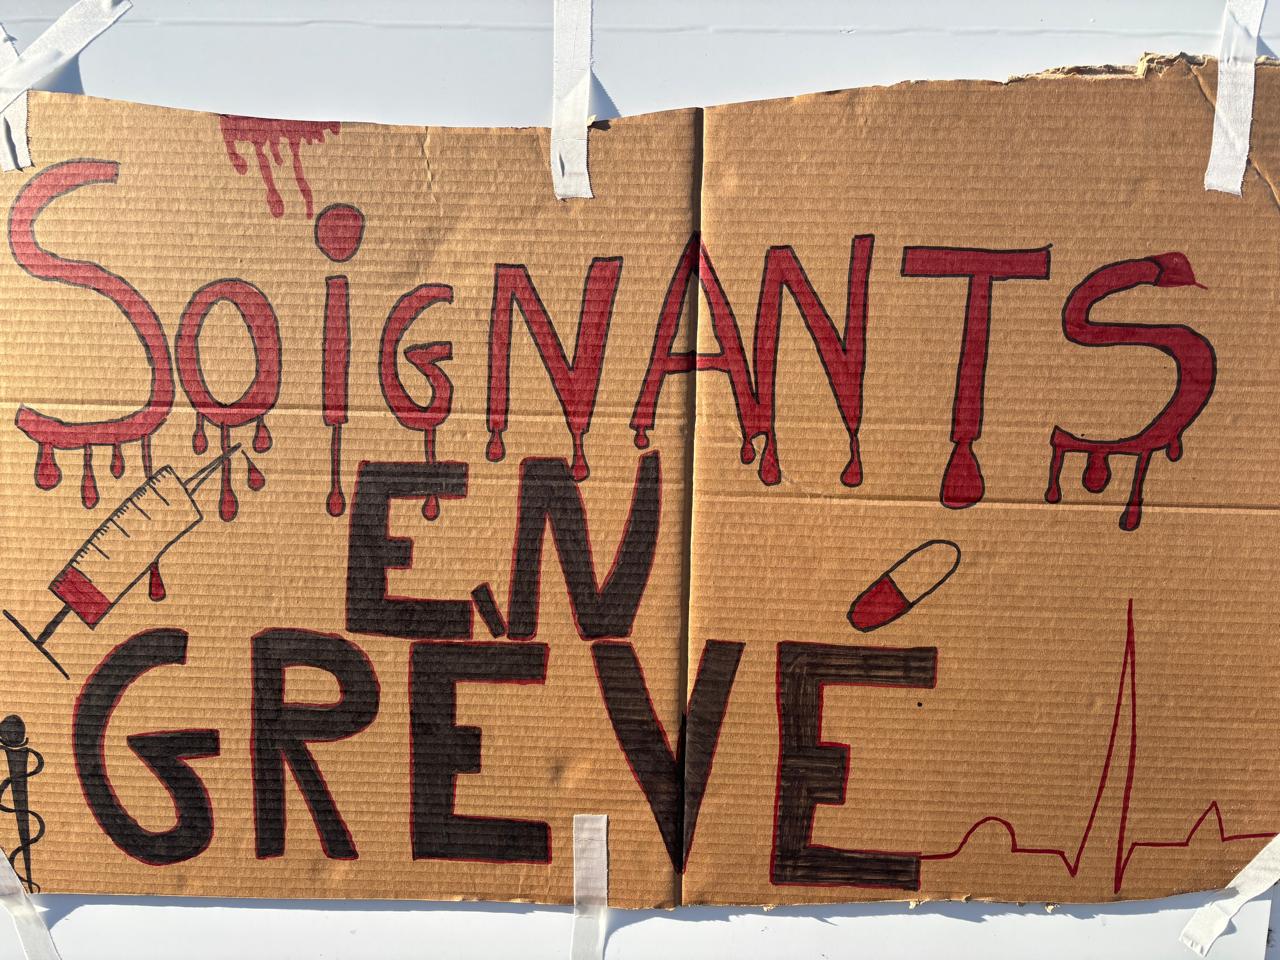 SOiGNANTS
EN
GRÈVE